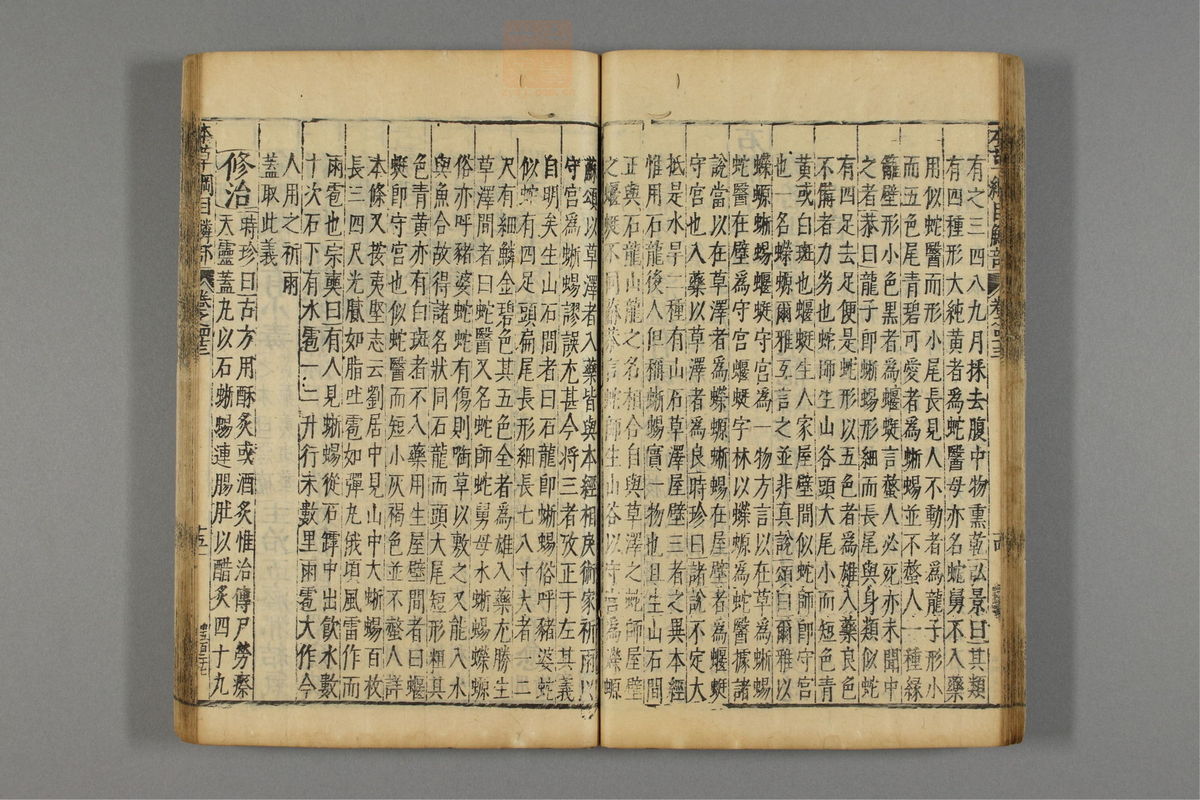 有之三四八九月採去腹中物熏乾弘景曰其類
有四種形大純黃者爲蛇醫母亦名蛇舅不入藥
用似蛇醫而形小尾長見人不動者爲龍子形小
而五色尾青碧可愛者爲蜥蜴並不螫人一種緣
籬壁形小色黑者爲蝘蜓言螫人必死亦未聞中
之者恭曰龍子即蜥蜴形細而長尾與身類似蛇
有四足去足便是蛇形以五色者爲雄入藥良色
不備者力劣也蛇師生山谷頭大尾小而短色青
黃或白斑也蝘蜓生人家屋壁間似蛇師即守宮
也一名蠑螈爾雅互言之並非真說頌曰爾雅以
蠑螈蜥蜴蝘蜓守宮爲一物方言以在草爲蜥蜴
蛇醫在壁爲守宮蝘蜓字林以蠑螈爲蛇醫據諸
說當以在草澤者爲蠑螈蜥蜴在屋壁者爲蝘蜓
守宮也入藥以草澤者爲良時珍曰諸說不定大
抵是水旱二種有山石草澤屋壁三者之異本經
惟用石龍後人但稱蜥蜴實一物也且生山石間
正與石龍山龍之名相合自與草澤之蛇師屋壁
之蝘蜓不同蘇恭言蛇師生山谷以守宮爲蠑螈
蘇頌以草澤者入藥皆與本經相戾術家祈雨以
守宮爲蜥蜴謬誤尤甚今將三者攷正于左其義
自明矣生山石間者曰石龍即蜥蜴俗呼豬婆蛇
似蛇有四足頭扁尾長形細長七八寸大者一二
尺有細鱗金碧色其五色全者爲雄入藥尤勝生
草澤間者曰蛇醫又名蛇師蛇舅母水蜥蜴蠑螈
俗亦呼豬婆蛇蛇有傷則啣草以敷之又能入水
與魚合故得諸名狀同石龍而頭大尾短形粗其
色青黃亦有白斑者不入藥用生屋壁間者曰蝘
蜓即守宮也似蛇醫而短小灰褐色並不螫人詳
本條又按夷堅志云劉居中見山中大蜥蜴百枚
長三四尺光膩如脂吐雹如彈丸俄頃風雷作而
雨雹也宗奭曰有人見蜥蜴從石罅中出飲水數
十次石下有水雹一二升行未數里雨雹大作今
人用之祈雨
蓋取此義
修治 時珍曰古方用酥炙或酒炙惟治傳尸勞瘵
天靈蓋丸以石蜥蜴連腸肚以醋炙四十九
本草綱目鱗部 卷之四十三